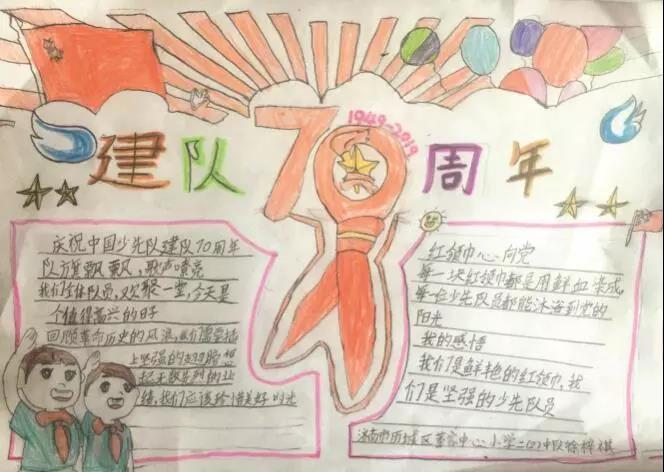 1949-2019
建队70周年
庆祝中国少先队建队70周年
队旗飘飘,歌声嘹亮
我们全体队员,欢聚一堂,今天是
个值得高兴的日子
回顾革命历史的风浪,我们需要挺
上坚强的
起无数先烈的
绩,我们应该珍惜美好时光
红领巾心向党
每一块红领巾都是用鲜血染成,
每一位少先队员都能沐浴到党的
阳光
我的感悟
我们是鲜艳的红领巾,我
们是坚强的少先队员
济南市历城区董家中心小学二(2)中队徐梓祺